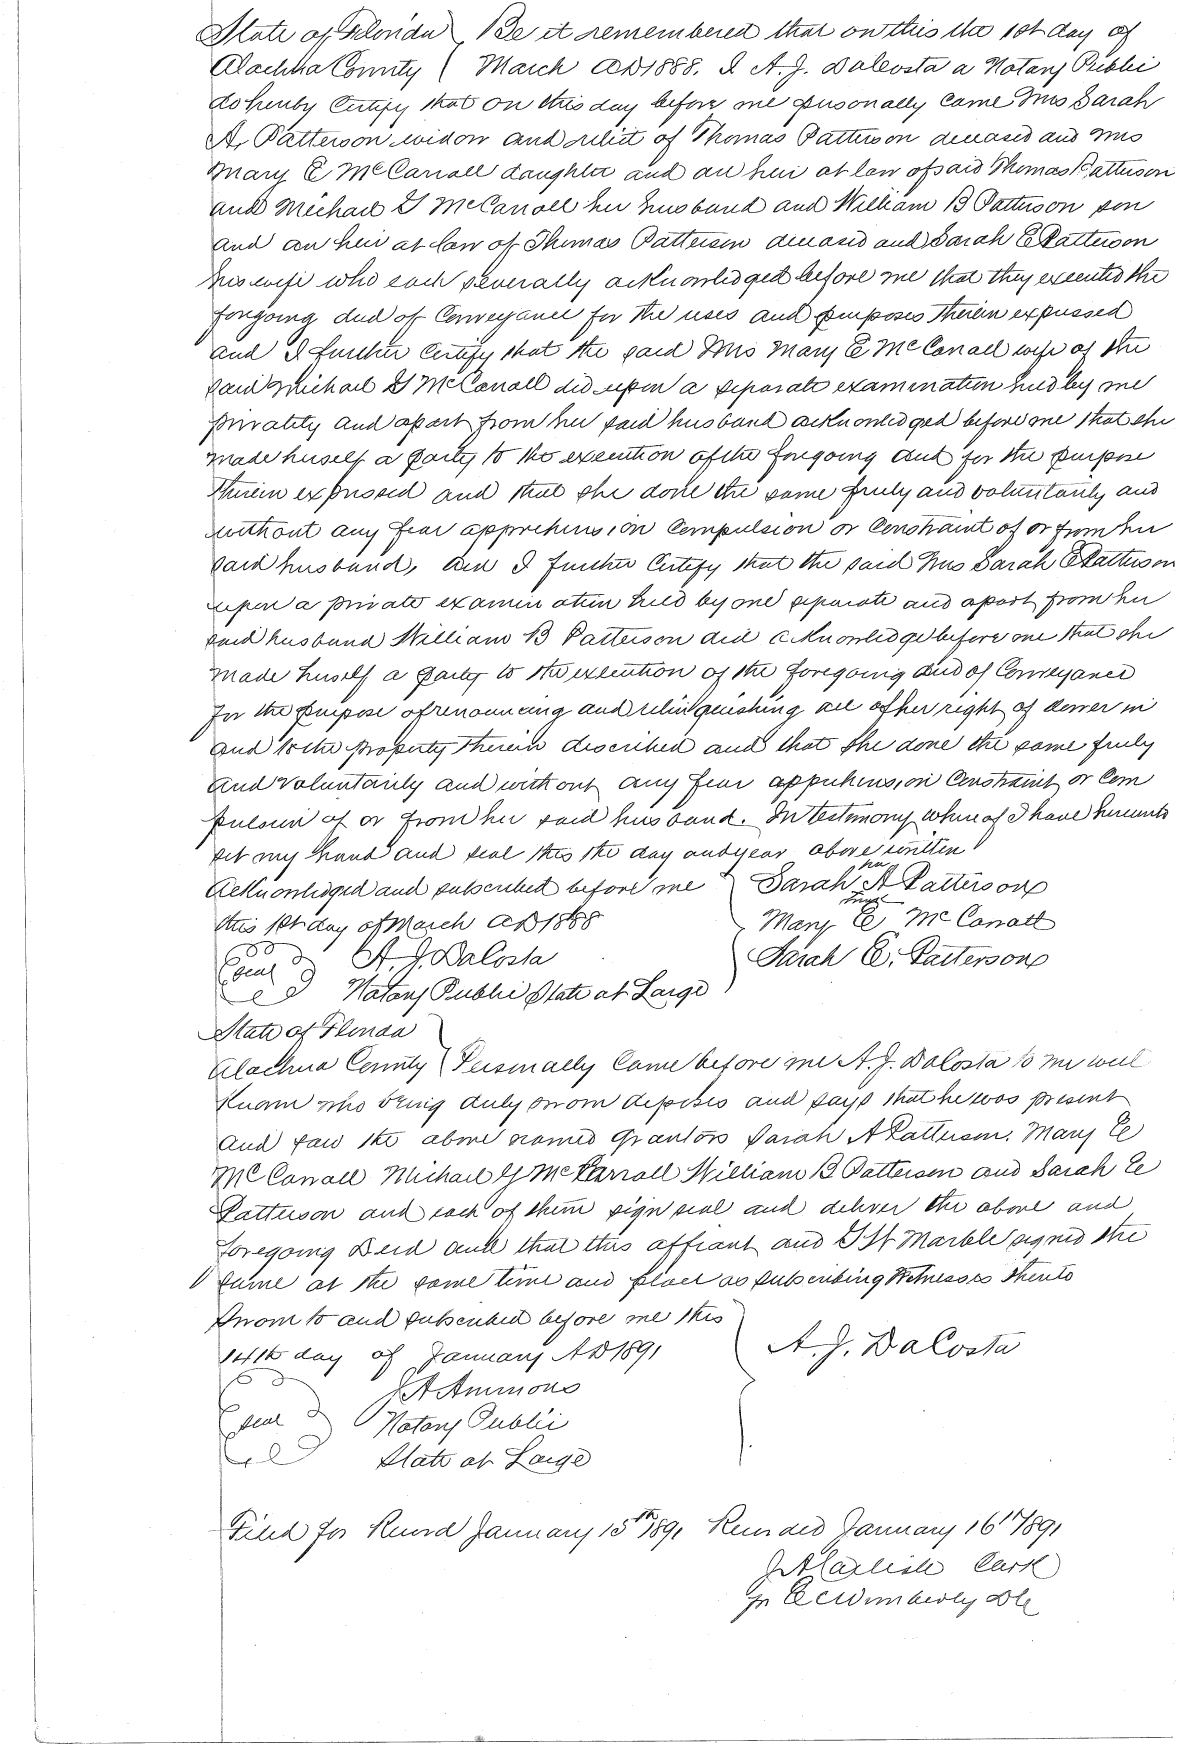 State of Florida } Be it remembered that on this the 1st day of
Alachua County } March AD 1888. I A. J. DaCosta a Notary Public
do hereby Certify that on this day before me personally came Mrs Sarah
A. Patterson widow and relict of Thomas Patterson deceased and Mrs
Mary E McCarroll daughter and an heir at law of said Thomas Patterson
and Michael G McCarroll her husband and William B Patterson son
and an heir at law of Thomas Patterson deceased and Sarah E Patterson
his wife who each severally acknowledged before me that they executed the
foregoing deed of Conveyance for the uses and purposes therein expressed
and I further Certify that the said Mrs Mary E McCarroll wife of the
said Michael G McCarroll did upon a separate examination held by me
privately and apart from her said husband acknowledged before me that she
made herself a party to the execution of the foregoing deed for the purpose
therein expressed and that she done the same freely and voluntarily and
without any fear apprehension compulsion or constraint of or from her
said husband, and I further Certify that the said Mrs Sarah E Patterson
upon a private examination held by me separate and apart from her
said husband William B Patterson did acknowledge before me that she
made herself a party to the execution of the foregoing deed of Conveyance
for the purpose of renouncing and relinquishing all of her right of dower in
and to the property therein described and that she done the same freely
and voluntarily and without any fear apprehension constraint or com
pulsion of or from her said husband. In testimony whereof I have hereunto
set my hand and seal this the day and year above written
Acknowledged and subscribed before me } Sarah her A Patterson
this 1st day of March AD 1888 Mary E McCarroll
(seal) A. J. DaCosta Sarah E. Patterson
Notary Public State at Large
State of Florida
Alachua County } Personally came before me A. J. DaCosta to me well
Known who being duly sworn deposes and says that he was present
and saw the above named grantors Sarah A Patterson. Mary E
McCarroll Michael G McCarroll William B Patterson and Sarah E
Patterson and each of them sign seal and deliver the above and
foregoing Deed and that this affiant and Marble signed the
same at the same time and place as subscribing Witnesses thereto
Sworn to and subscribed before me this
14th day of January AD 1891 A. J. DaCosta
J A Ammons
(seal) Notary Public
State at Large
Filed for Record January 15th 1891 Recorded January 16th 1891
J A Carlisle Clerk
pr E C Wimberly DC